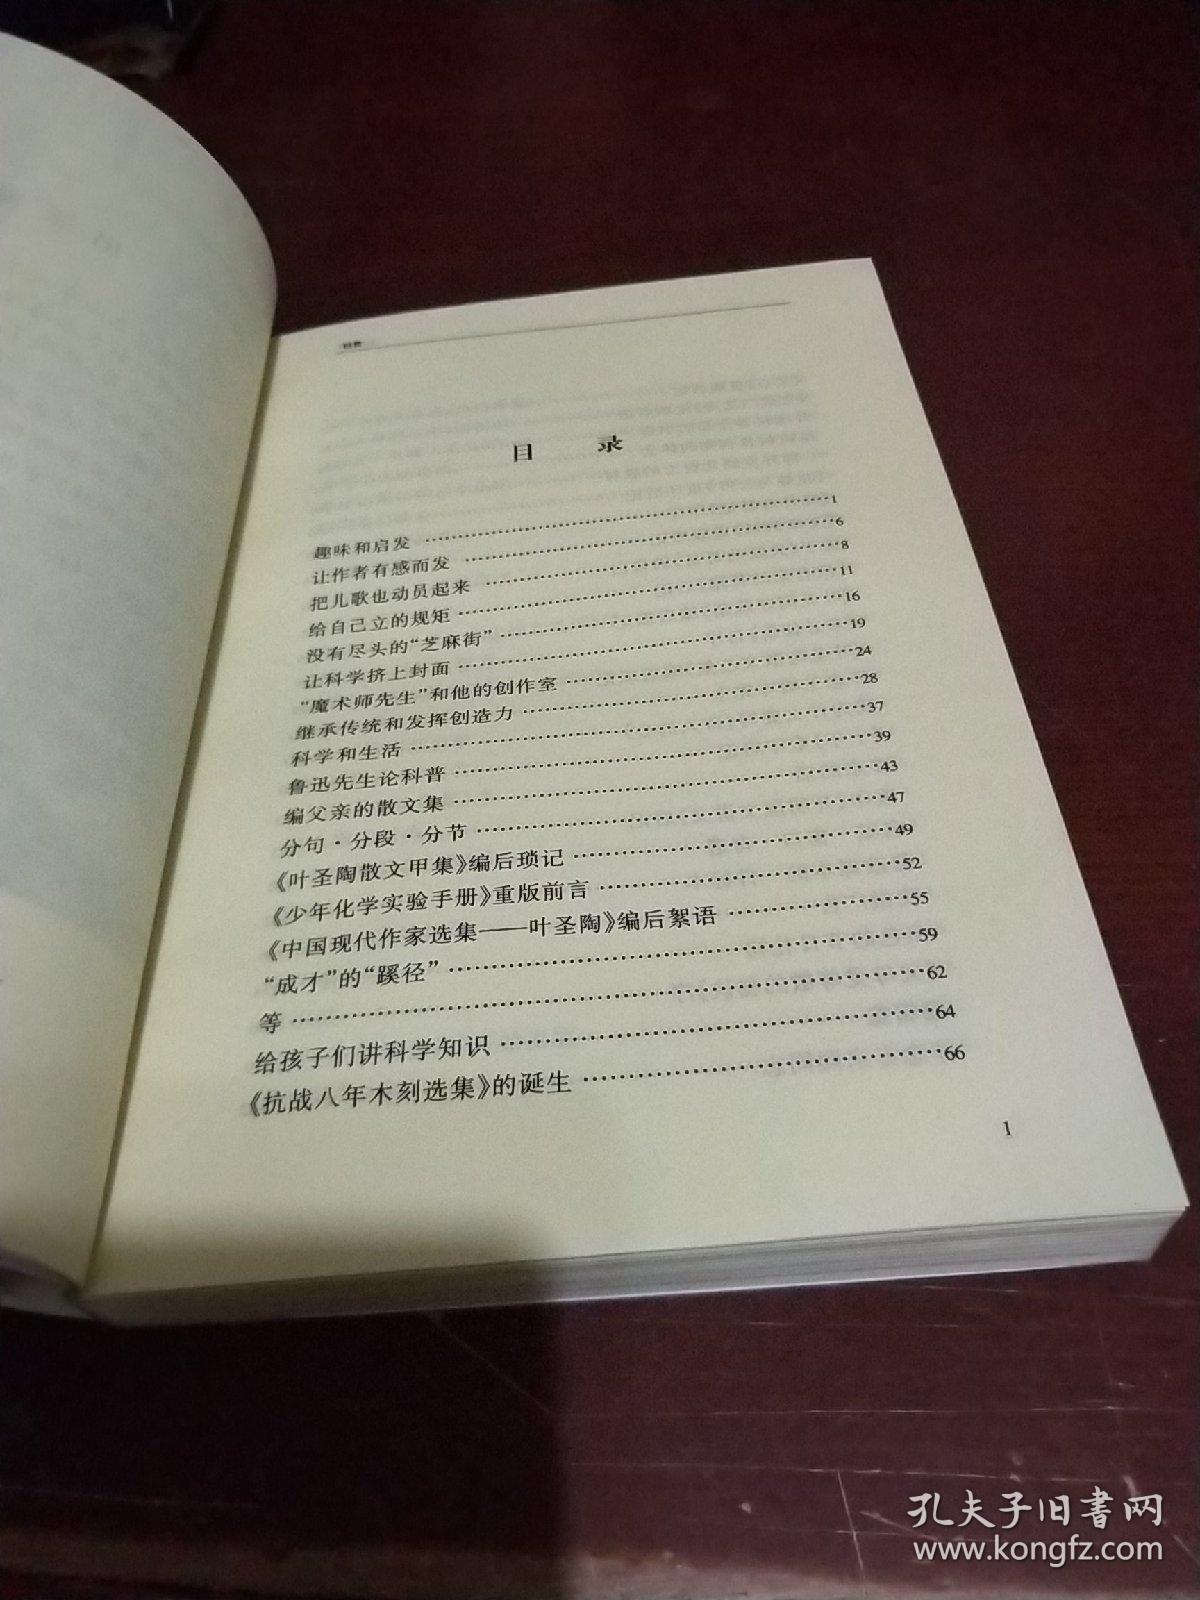 目 录
趣味和启发 …… 1
让作者有感而发 …… 6
把儿歌也动员起来 …… 8
给自己立的规矩 …… 11
没有尽头的“芝麻街” …… 16
让科学挤上封面 …… 19
“魔术师先生”和他的创作室 …… 24
继承传统和发挥创造力 …… 28
科学和生活 …… 37
鲁迅先生论科普 …… 39
编父亲的散文集 …… 43
分句·分段·分节 …… 47
《叶圣陶散文甲集》编后琐记 …… 49
《少年化学实验手册》重版前言 …… 52
《中国现代作家选集——叶圣陶》编后絮语 …… 55
“成才”的“蹊径” …… 59
等 …… 62
给孩子们讲科学知识 …… 64
《抗战八年木刻选集》的诞生 …… 66
1
孔夫子旧书网
www.kongfz.com